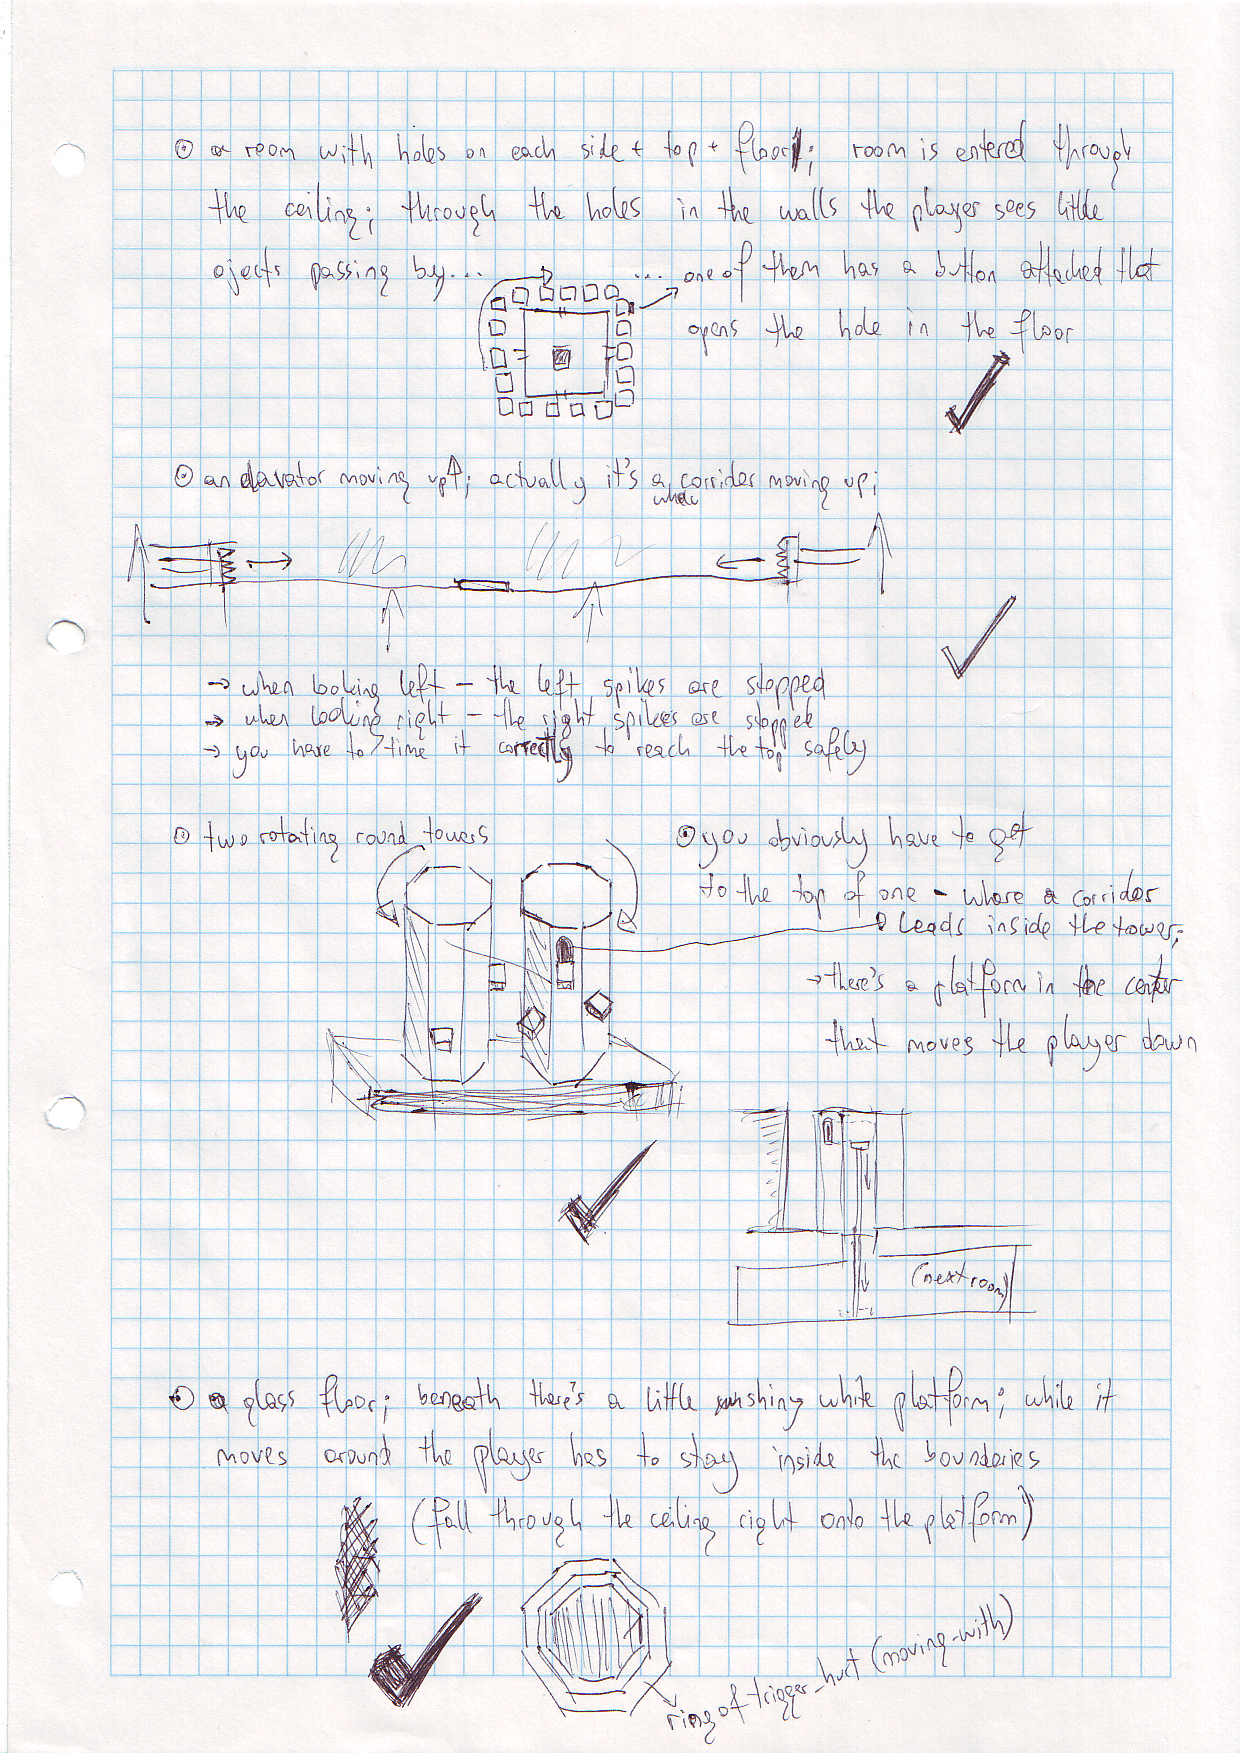 a room with holes on each side + top + floor; room is entered through
the ceiling; through the holes in the walls the player sees little
ojects passing by...
... one of them has a button attached that
opens the hole in the floor
an elavator moving up↑; actually it's a whole corridor moving up;
→ when looking left – the left spikes are stopped
→ when looking right – the right spikes are stopped
→ you have to time it correctly to reach the top safely
two rotating round towers
you obviously have to get
to the top of one - where a corridor
leads inside the tower;
→ there's a platform in the center
that moves the player down
(next room)
a glass floor; beneath there's a little shing white platform; while it
moves around the player has to stay inside the boundaries
(fall through the ceiling right onto the platform)
ring of trigger_hurt (moving-with)